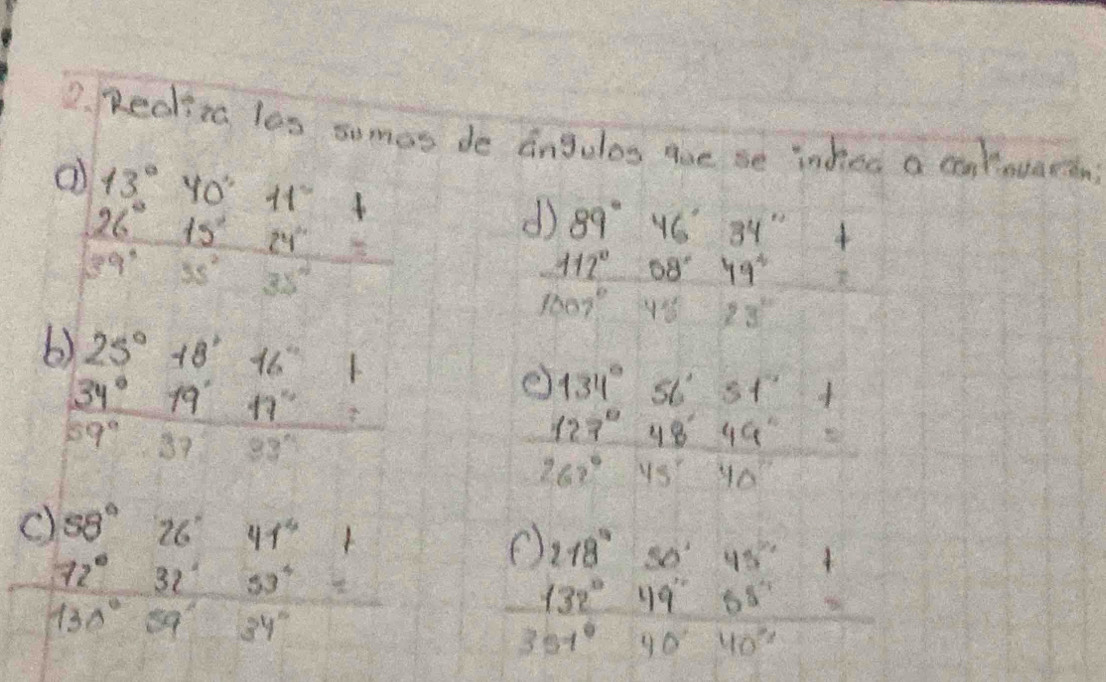 2. Realiza las sumas de ángulos que se indica a continuación:
a) 13° 40' 11" +
26° 15' 24" =
39° 55' 35"
b) 25° 18' 16" +
34° 19' 17" =
59° 37 33"
c) 58° 26' 41" +
72° 32' 53" =
130° 59' 34"
d) 89° 46' 34" +
112° 58' 49" =
45' 23"
e) 134° 56' 51" +
127° 48' 49" =
262° 45' 40"
f) 218° 50' 45" +
132° 49" 55" =
351° 40' 40"